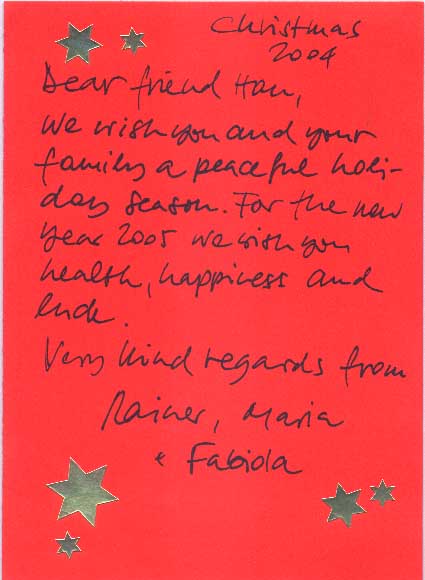 Christmas
2004
Dear friend Han,
We wish you and your
family a peaceful holi-
day season. For the new
year 2005 we wish you
health, happiness and
luck.
Very kind regards from
Rainer, Maria
+ Fabiola